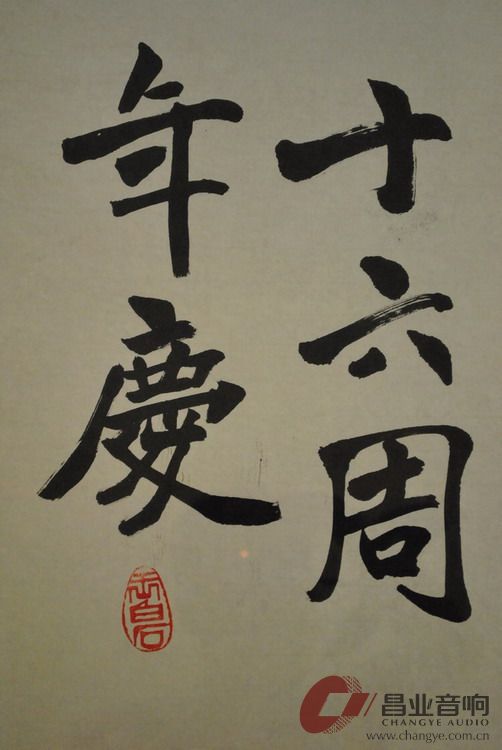 十六周
年慶
昌业音响
CHANGYE AUDIO
www.changye.com.cn